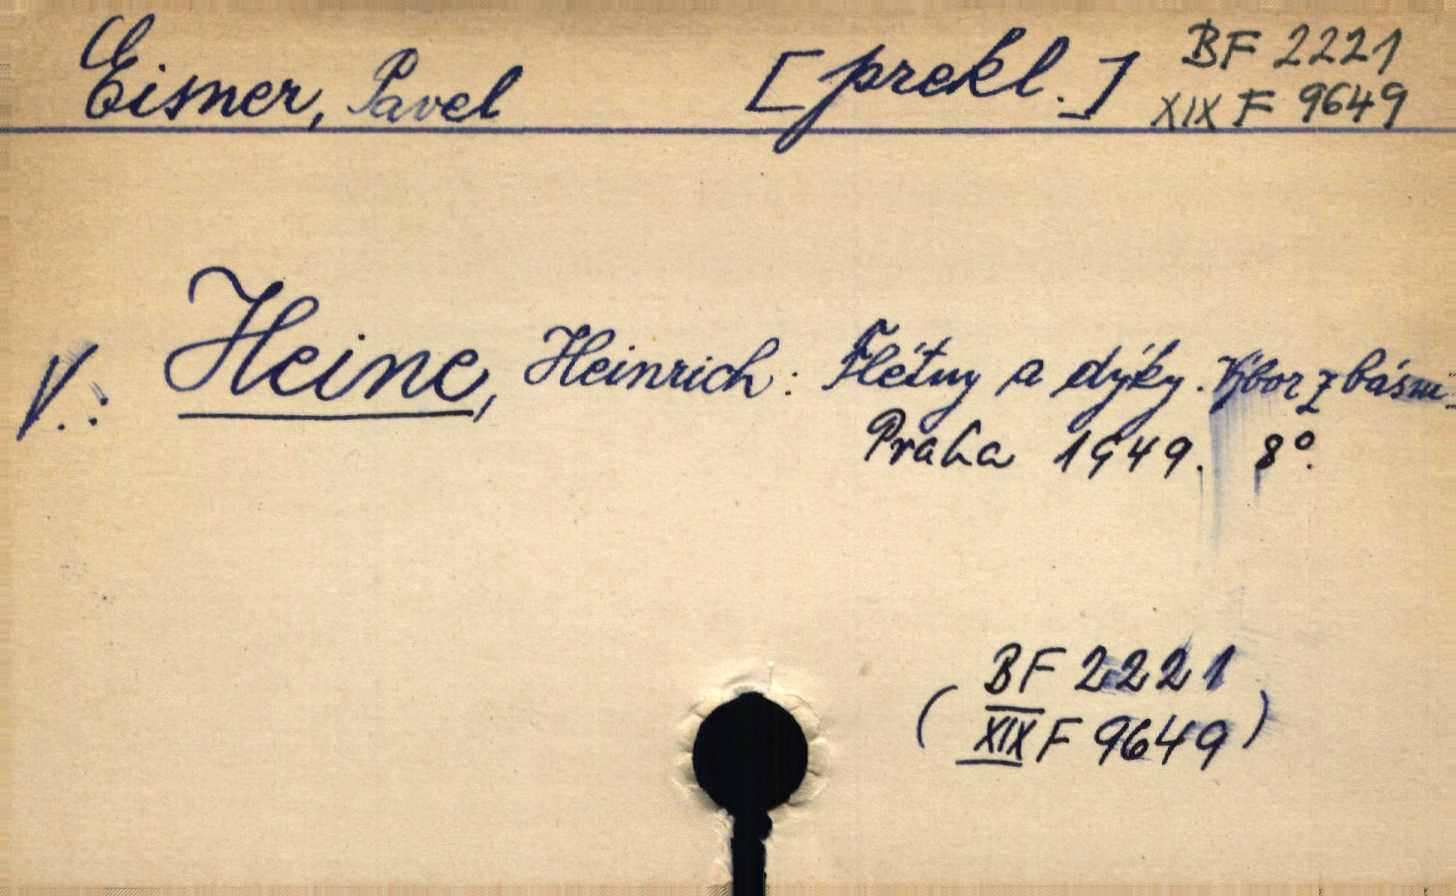 Eisner, Pavel [prekl.] BF 2221
XIX F 9649
V.: Heine, Heinrich: Flétny a dýky. Výbor z básní.
Praha 1949. 8°.
(BF 2221
XIX F 9649)